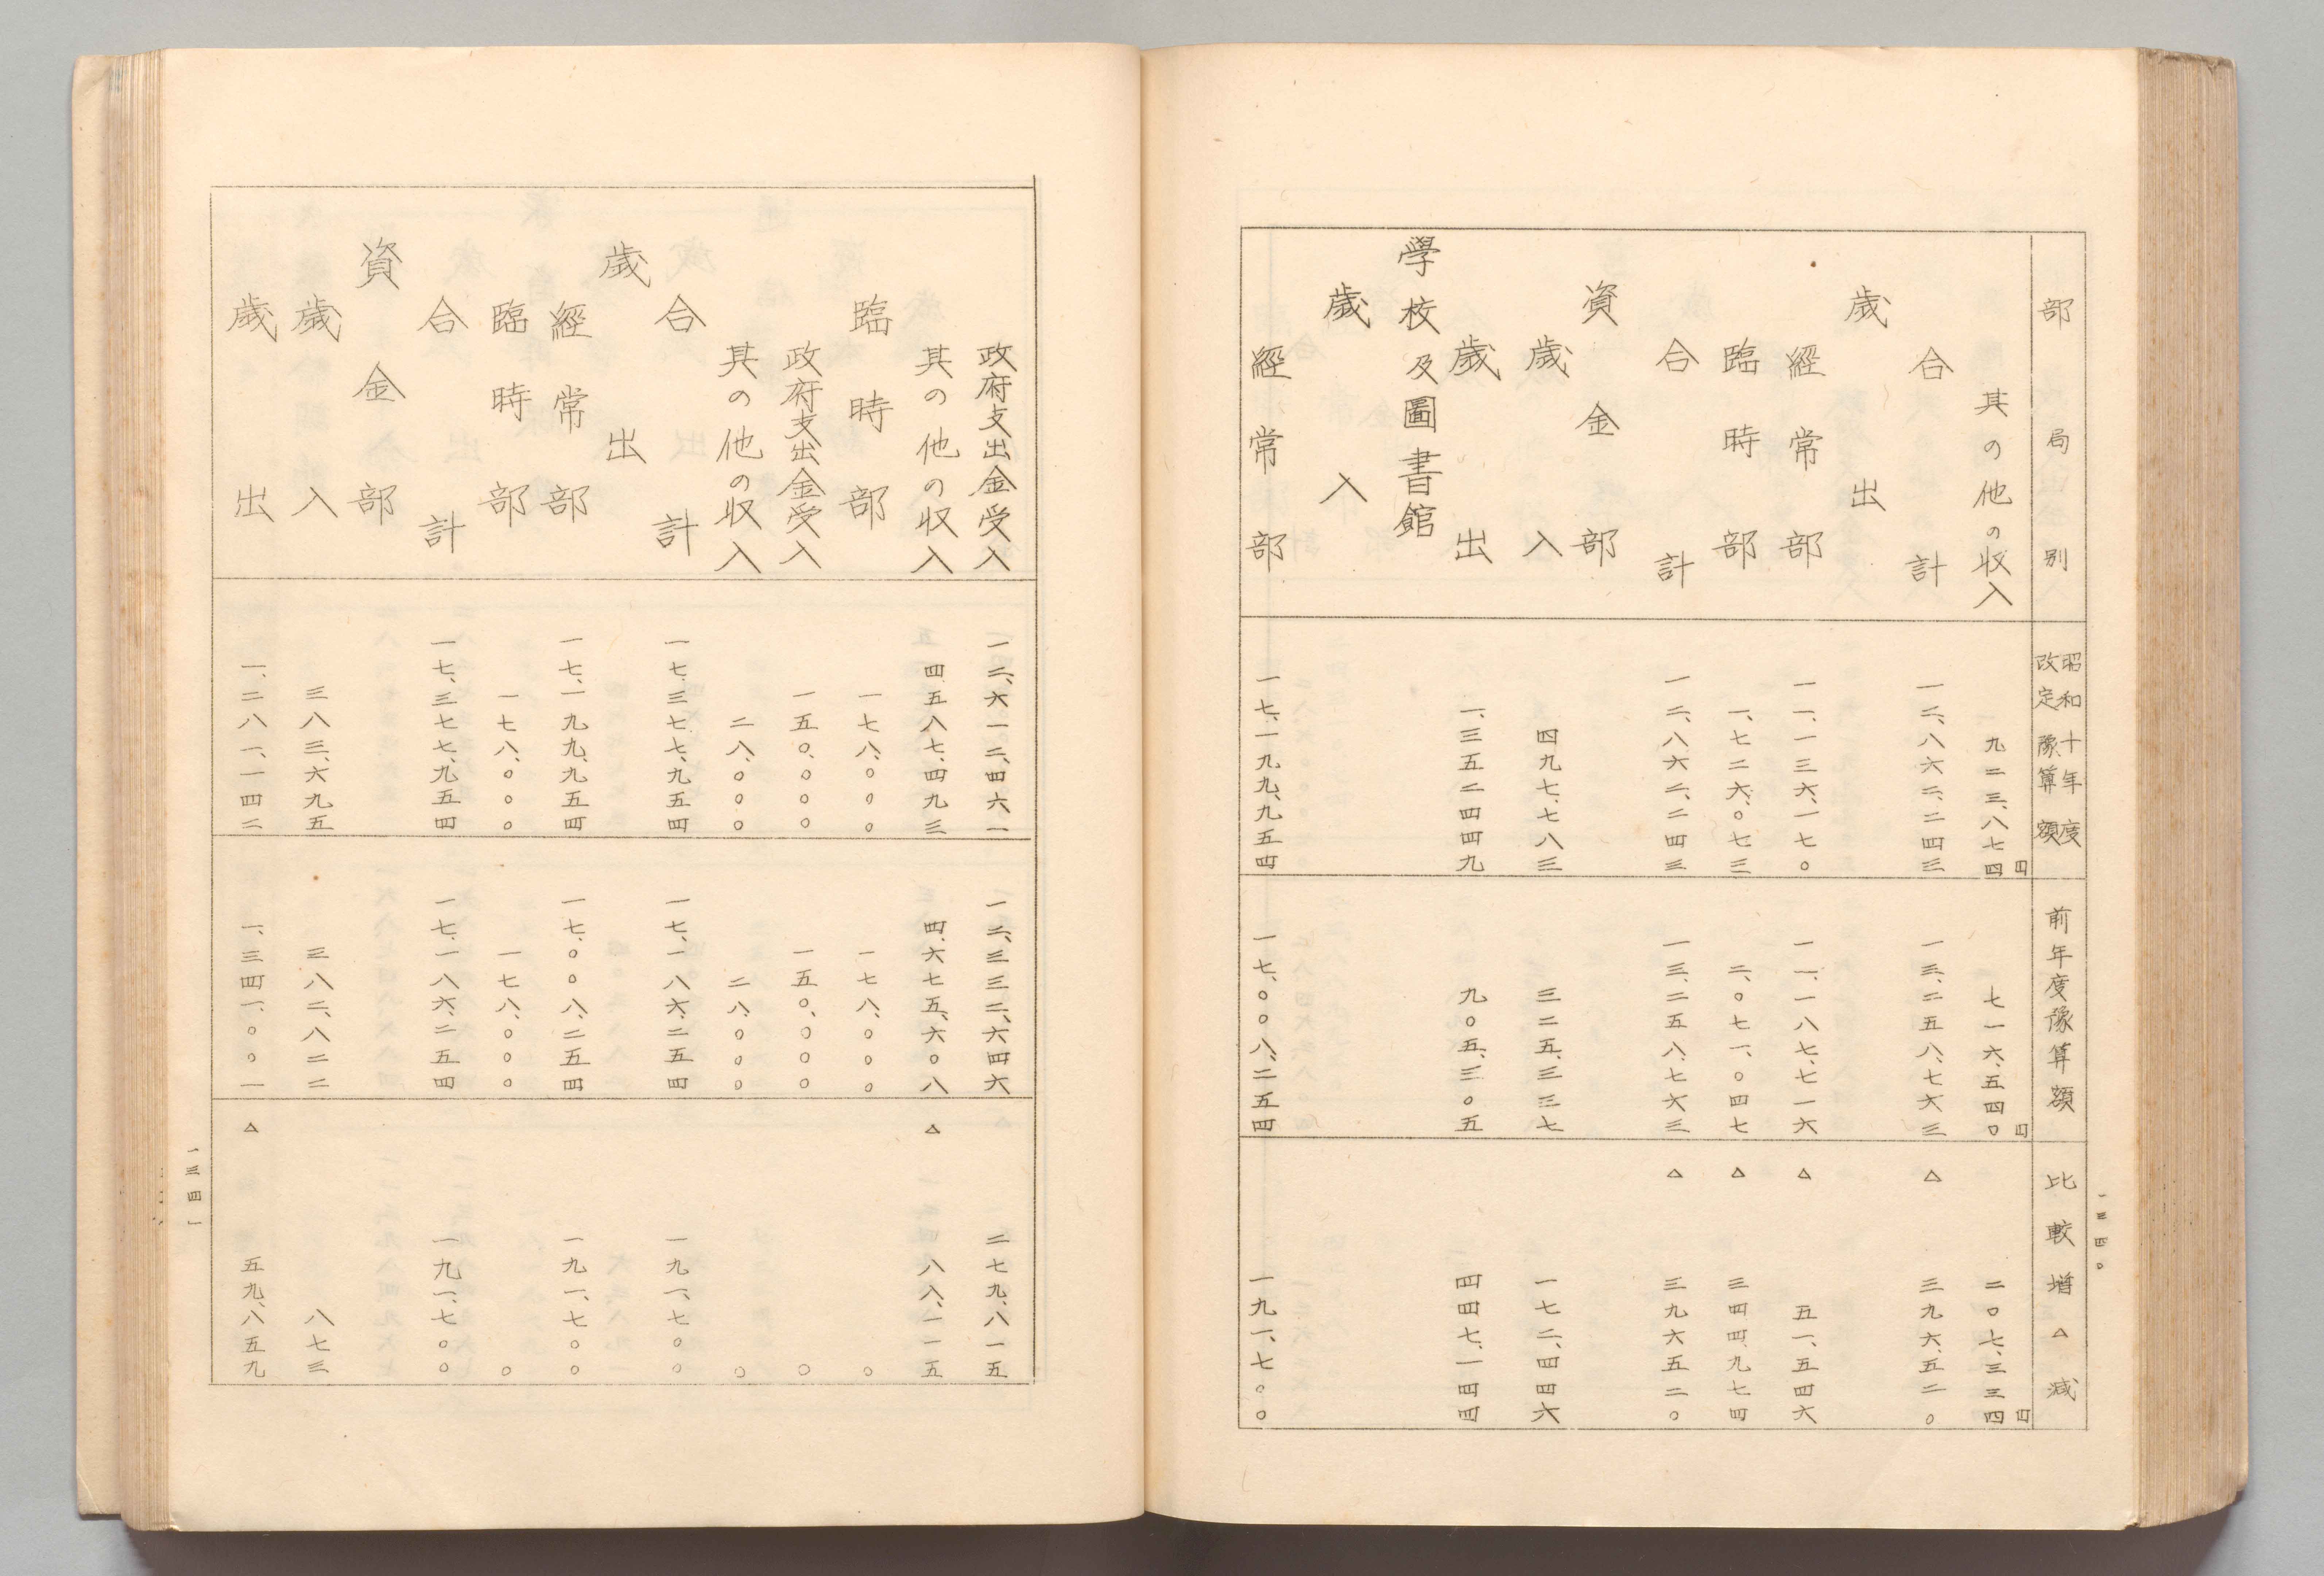 一三四〇
部局別 昭和十年度改定豫算額 前年度豫算額 比較増△減
円 円 円
其の他の収入 九二三、八七四 七一六、五四〇 二〇七、三三四
合計 一二、八六二、二四三 一三、二五八、七六三 △三九六、五二〇
歳出
經常部 一一、一三六、一七〇 一一、一八七、七一六 △五一、五四六
臨時部 一、七二六、〇七三 二、〇七一、〇四七 △三四四、九七四
合計 一二、八六二、二四三 一三、二五八、七六三 △三九六、五二〇
資金部
歳入 四九七、七八三 三二五、三三七 一七二、四四六
歳出 一、三五二、四四九 九〇五、三〇五 四四七、一四四
學校及圖書館
歳入
經常部 一七、一九九、九五四 一七、〇〇八、二五四 一九一、七〇〇
政府支出金受入 一二、六一二、四六一 一二、三三二、六四六 二七九、八一五
其の他の収入 四、五八七、四九三 四、六七五、六〇八 △八八、一一五
臨時部 一七八、〇〇〇 一七八、〇〇〇 〇
政府支出金受入 一五〇、〇〇〇 一五〇、〇〇〇 〇
其の他の収入 二八、〇〇〇 二八、〇〇〇 〇
合計 一七、三七七、九五四 一七、一八六、二五四 一九一、七〇〇
歳出
經常部 一七、一九九、九五四 一七、〇〇八、二五四 一九一、七〇〇
臨時部 一七八、〇〇〇 一七八、〇〇〇 〇
合計 一七、三七七、九五四 一七、一八六、二五四 一九一、七〇〇
資金部
歳入 三八三、六九五 三八二、八二二 八七三
歳出 一、二八一、一四二 一、三四一、〇〇一 △五九、八五九
一三四一